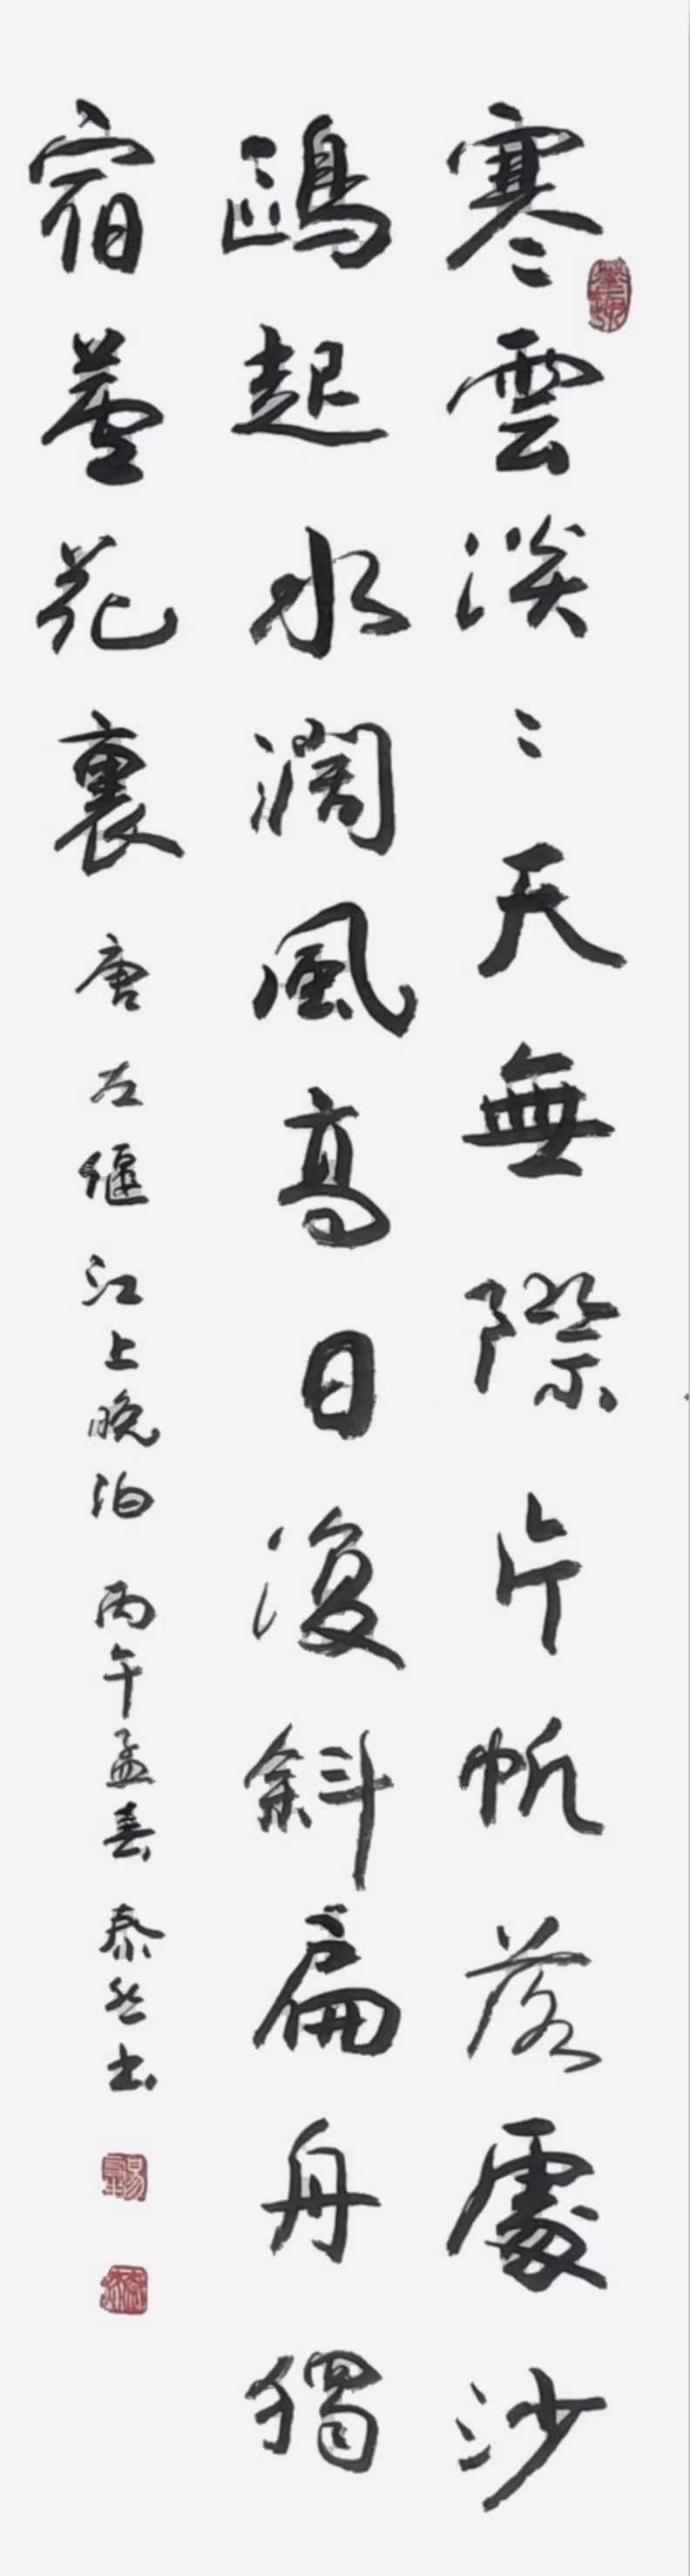 寒雲淡〻天無際片帆落處沙
鷗起水濶風高日復斜扁舟獨
宿蘆花裏 唐 左偃 江上晚泊 丙午孟春 泰然书